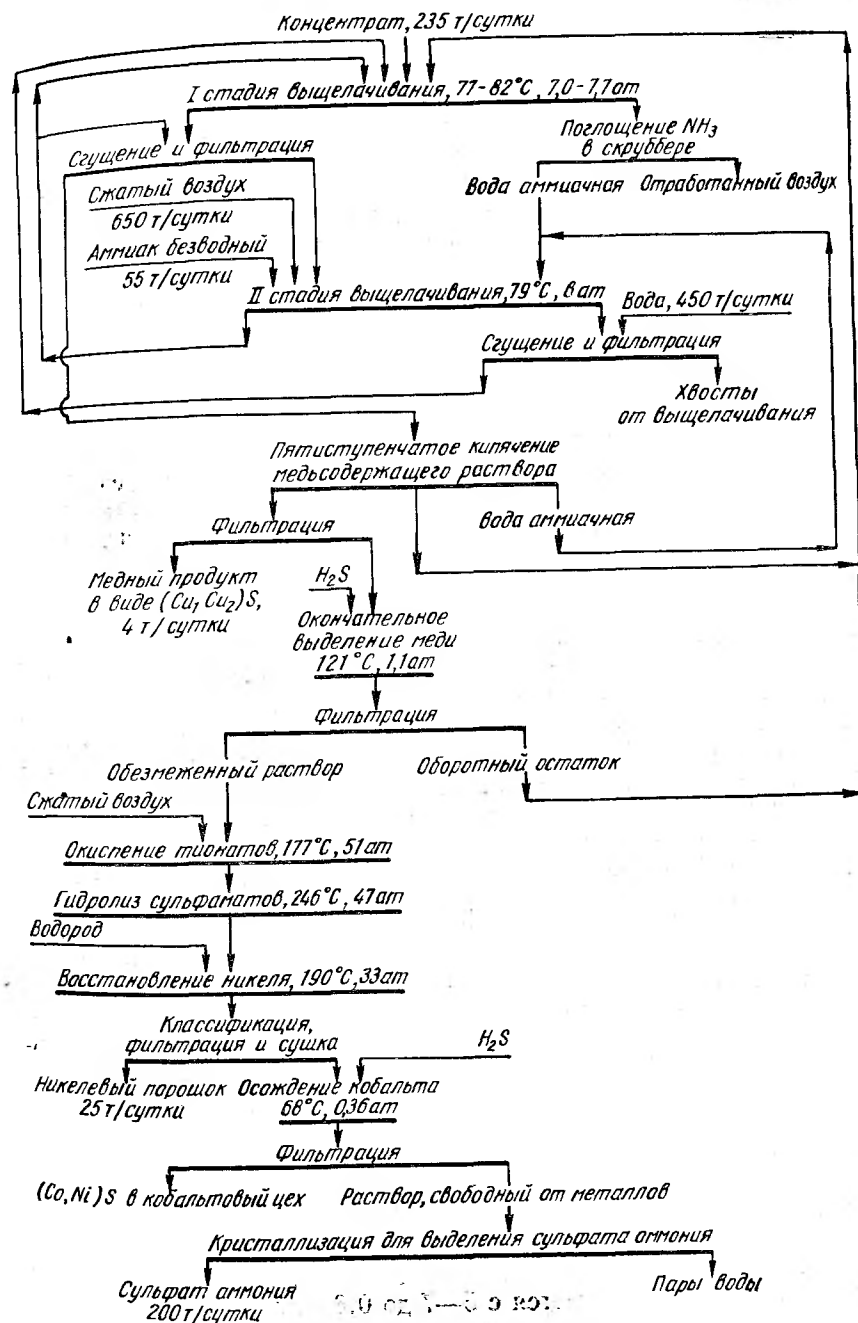 Концентрат, 235 т/сутки
I стадия выщелачивания, 77-82°С, 7,0-7,7 ат
Поглощение NH3
в скруббере
Сгущение и фильтрация
Сжатый воздух
650 т/сутки
Вода аммиачная Отработанный воздух
Аммиак безводный
55 т/сутки
II стадия выщелачивания, 79°С, 8 ат
Вода, 450 т/сутки
Сгущение и фильтрация
Хвосты
от выщелачивания
Пятиступенчатое кипячение
медьсодержащего раствора
Фильтрация
Вода аммиачная
Медный продукт
в виде (Cu, Cu2)S,
4 т/сутки
H2S
Окончательное
выделение меди
121°С, 1,1 ат
Фильтрация
Обезмеженный раствор
Оборотный остаток
Сжатый воздух
Окисление тионатов, 177°С, 51 ат
Гидролиз сульфаматов, 246°С, 47 ат
Водород
Восстановление никеля, 190°С, 33 ат
Классификация,
фильтрация и сушка
H2S
Никелевый порошок Осождение кобальта
25 т/сутки
68°С, 0,36 ат
Фильтрация
(Co,Ni)S в кобальтовый цех
Раствор, свободный от металлов
Кристаллизация для выделения сульфата аммония
Сульфат аммония
200 т/сутки
Пары воды